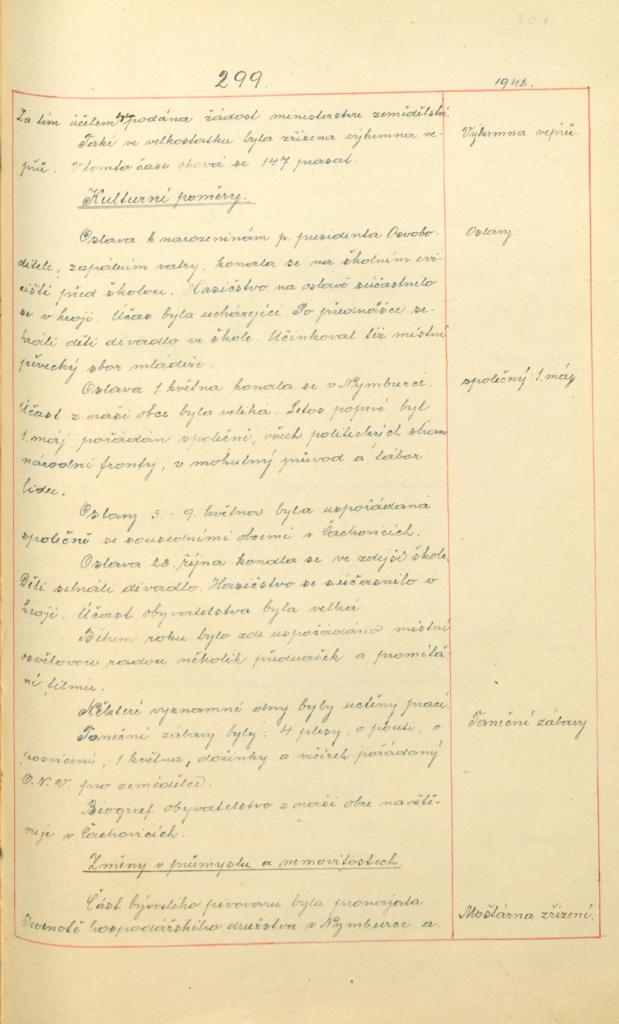 299.
1948.
Za tím účelem podána žádost ministerstvu zemědělství.
Také ve velkostatku byla zřízena výkrmna ve-
přů. V tomto čase chová se 147 prasat.
Výkrmna vepřů.
Kulturní poměry.
Oslava k narozeninám p. presidenta Osvobo-
ditele, zapálením vatry, konala se na školním cvi-
čišti před školou. Hasičstvo na oslavě súčastnilo
se v kroji. Účast byla ucházející. Po přednášce se-
hráli děti divadlo ve škole. Účinkoval též místní
pěvecký sbor mládeže.
Oslavy:
Oslava 1 května konala se v Nymburce.
Účast z naší obce byla veliká. Letos poprvé byl
1. máj pořádán společně, všech politických stran
národní fronty, v mohutný průvod a tábor
lidu.
společný 1. máj
Oslavy 5 - 9. května byla uspořádaná
společně se sousedními obcemi v Čachovicích.
Oslava 28. října konala se ve zdejší škole.
Děti sehráli divadlo. Hasičstvo se súčasnilo v
kroji. Účast obyvatelstva byla velká.
Během roku bylo zde uspořádáno místní
osvětovou radou několik přednášek a promítá-
ní filmu.
Některé významné dny byly uctěny prací.
Taneční zábavy byly: 4 plesy, o pouti, o
posvícení, 1 května, dožínky a věčírek pořádaný
O.N.V. pro zemědělce.
Taneční zábavy
Biograf obyvatelstvo z naší obce navště-
vuje v Čachovicích.
Změny v průmyslu a nemovitostech.
Část bývalého pivovaru byla pronajata
Jednotě hospodářského družstva v Nymburce a.
Moštárna zřízení.